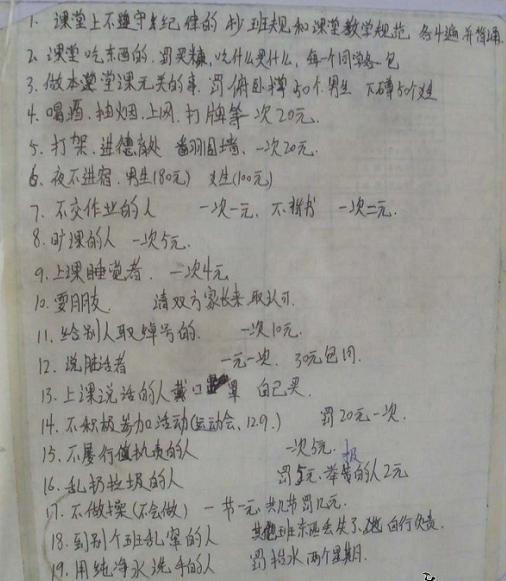 1. 课堂上不遵守纪律的 抄班规和课堂教学规范 各4遍 并背诵
2. 课堂吃东西的. 罚买糖, 吃什么买什么, 每个同学各一包
3. 做本堂课无关的事. 罚俯卧撑50个男生 下蹲50个女生
4. 喝酒. 抽烟. 上网. 打牌等一次20元.
5. 打架. 进德育处 翻围墙. 一次20元.
6. 夜不进宿. 男生(180元) 女生(100元)
7. 不交作业的人 一次一元. 不带书 一次二元.
8. 旷课的人 一次5元.
9. 上课睡觉者. 一次4元
10. 耍朋友. 请双方家长来取认可.
11. 给别人取绰号的. 一次10元.
12. 说脏话者 一元一次. 30元包月.
13. 上课说话的人戴口罩 自己买.
14. 不积极参加活动(运动会、12.9.) 罚20元一次.
15. 不履行值执责的人 一次5元.
16. 乱扔垃圾的人 罚5元. 举报的人2元
17. 不做操(不会做) 一节一元. 共几节罚几元.
18. 到别个班乱窜的人 其班东西丢失了 自行负责.
19. 用纯净水洗手的人 罚抬水两个星期.